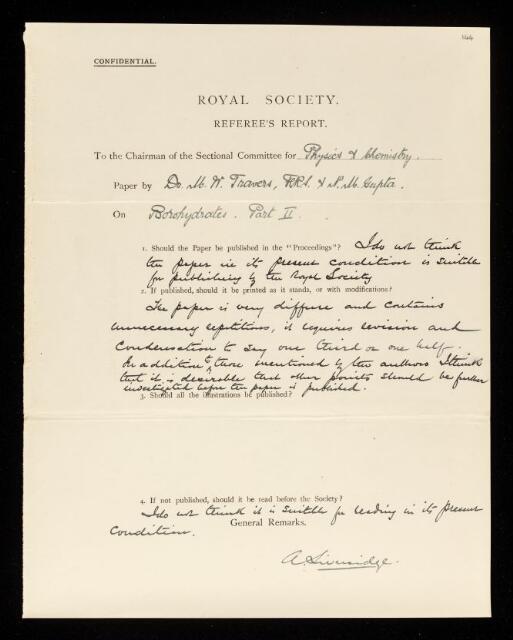 144
CONFIDENTIAL.
ROYAL SOCIETY.
REFEREE'S REPORT.
To the Chairman of the Sectional Committee for Physics & Chemistry.
Paper by Dr. M. W. Travers, F.R.S. & N. M. Gupta.
On Borohydrates. Part II.
1. Should the Paper be published in the "Proceedings"? I do not think
the paper in its present condition is suitable
for publishing by the Royal Society
2. If published, should it be printed as it stands, or with modifications?
The paper is very diffuse and contains
unnecessary repetitions, it requires revision and
condensation to say one third or one half.
In addition to those mentioned by the authors I think
that it is desirable that other points should be further
investigated before the paper is published.
3. Should all the illustrations be published?
4. If not published, should it be read before the Society?
I do not think it is suitable for reading in its present
condition.
General Remarks.
A. Liversidge.